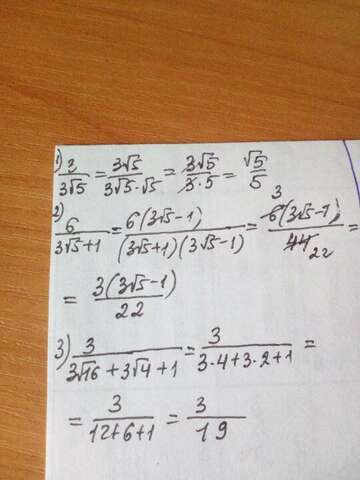 1) 3/3√5 = 3√5/3√5·√5 = 3√5/3·5 = √5/5
2) 6/3√5+1 = 6(3√5-1)/(3√5+1)(3√5-1) = 3 6(3√5-1)/44 22 =
= 3(3√5-1)/22
3) 3/3√16+3√4+1 = 3/3·4+3·2+1 =
= 3/12+6+1 = 3/19